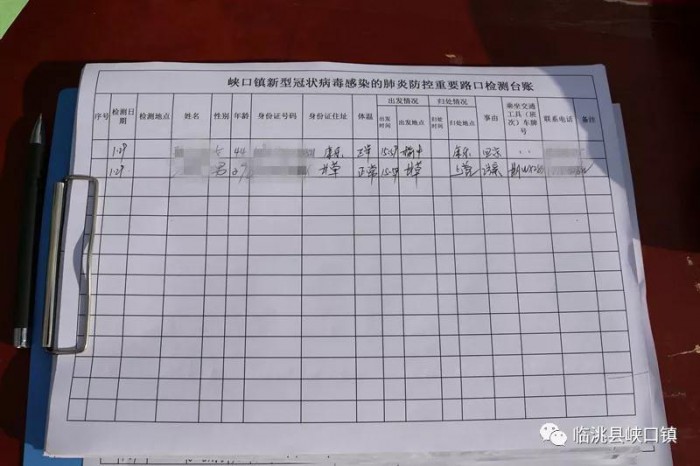 峡口镇新型冠状病毒感染的肺炎防控重要路口检测台账
序号 检测日期 检测地点 姓名 性别 年龄 身份证号码 身份证住址 体温 出发情况 出发时间 出发地点 归处情况 归处时间 归处地点 事由 乘坐交通工具（班次）车牌号 联系电话 备注
1.29 女 44 康乐 正常 15:57 榆中 康乐
1.29 男 正常
临洮县峡口镇